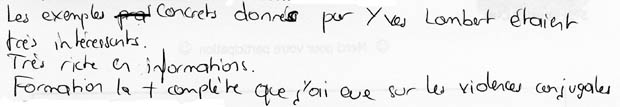 Les exemples concrets donnés par Yves Lambert étaient
très intéressants.
Très riche en informations.
Formation la + complète que j'ai eue sur les violences conjugales